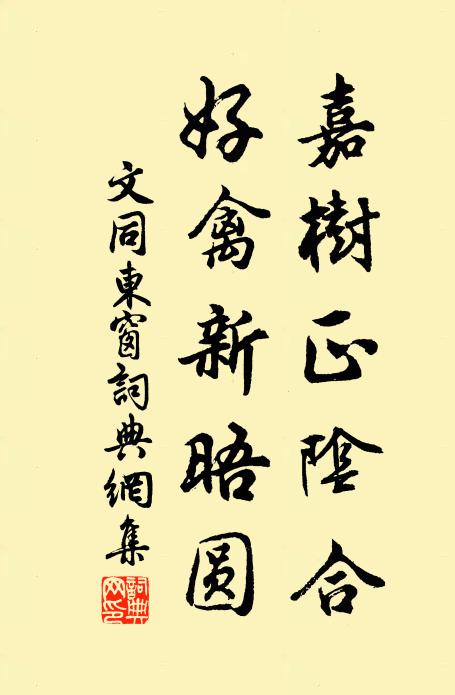 嘉樹正陰合
好禽新晤圆
文同東窗詞典網集
詞典網印